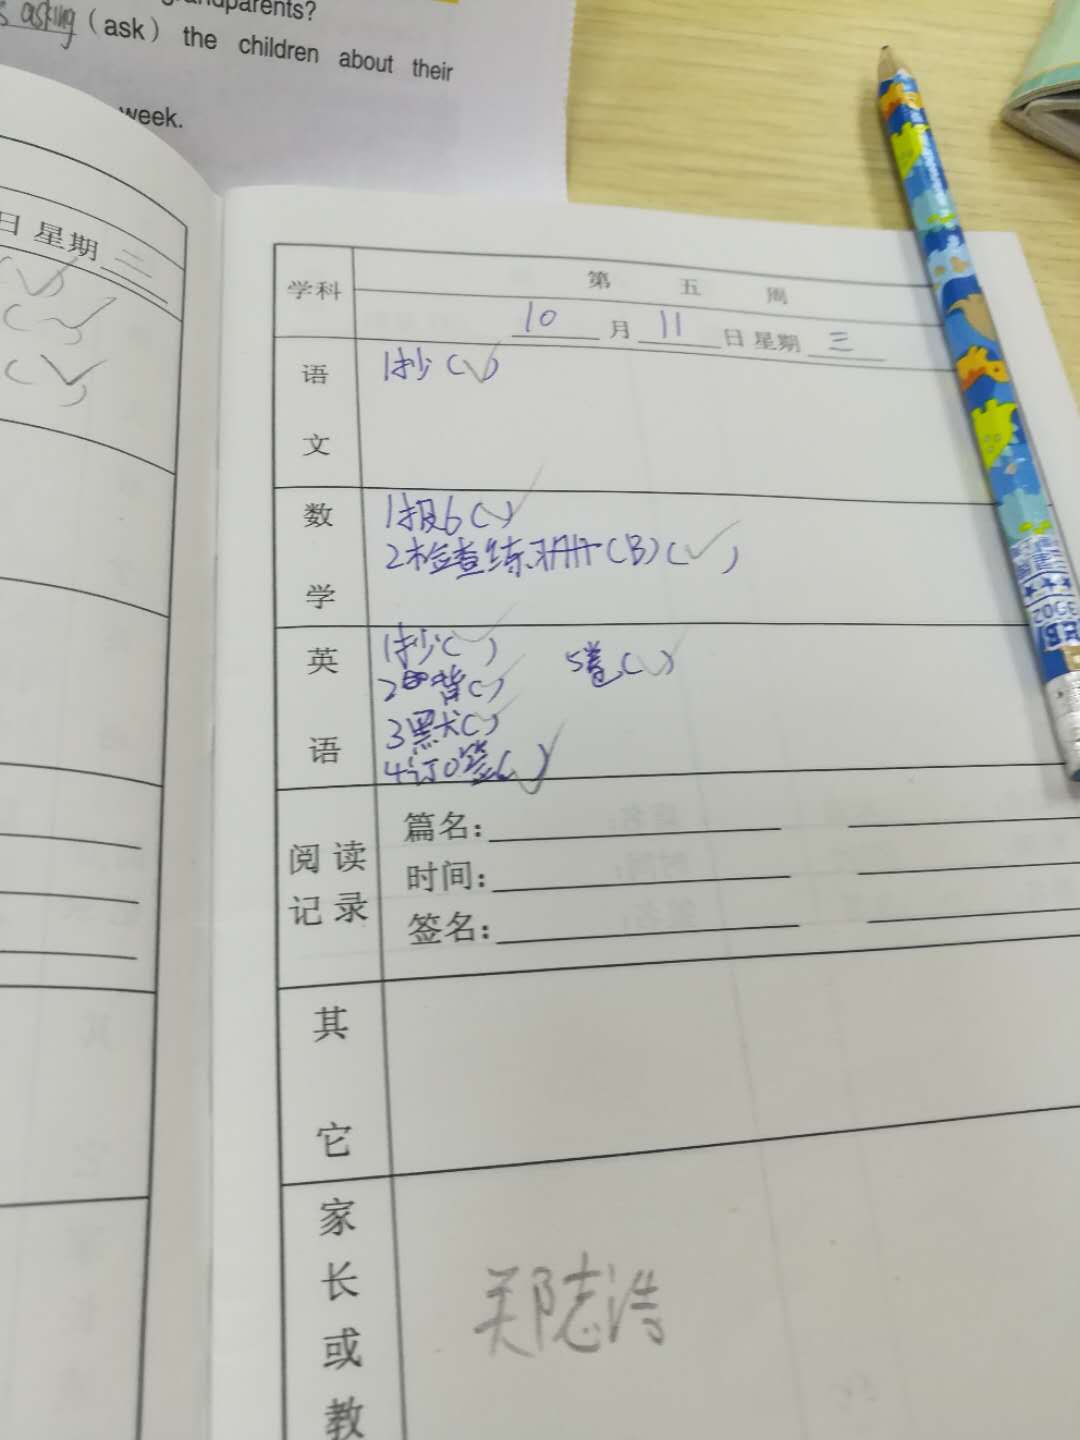 s asking (ask) the children about their
grandparents?
week.
日 星期 三
学科
第 五 周
10 月 11 日 星期 三
语文
1抄(✓)
数学
1报6(✓)
2检查练习册(B)(✓)
英语
1抄(✓)
2背(✓)
3默(✓)
4订0签(✓)
5卷(✓)
阅读记录
篇名:
时间:
签名:
其它
家长或教
郑志浩